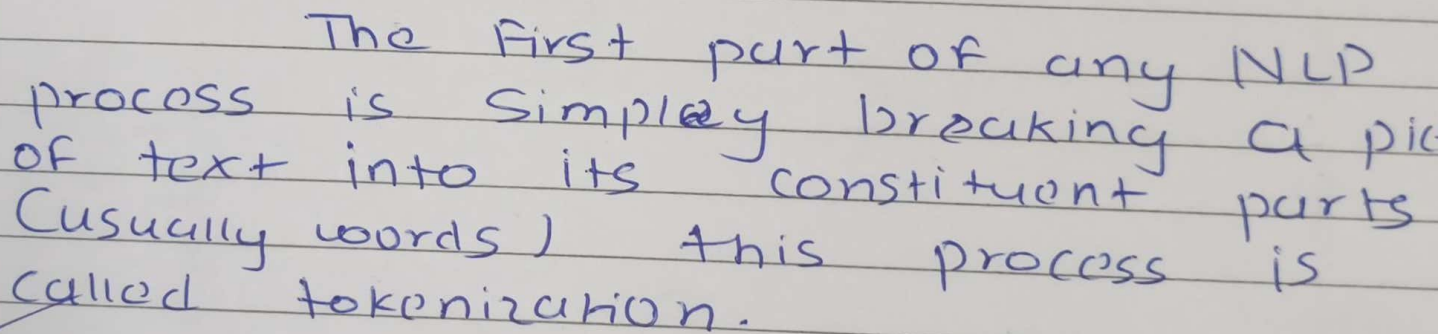 The First part of any NLP
process is Simpley breaking a pic
of text into its constituent parts
(usually words) this process is
called tokenization.